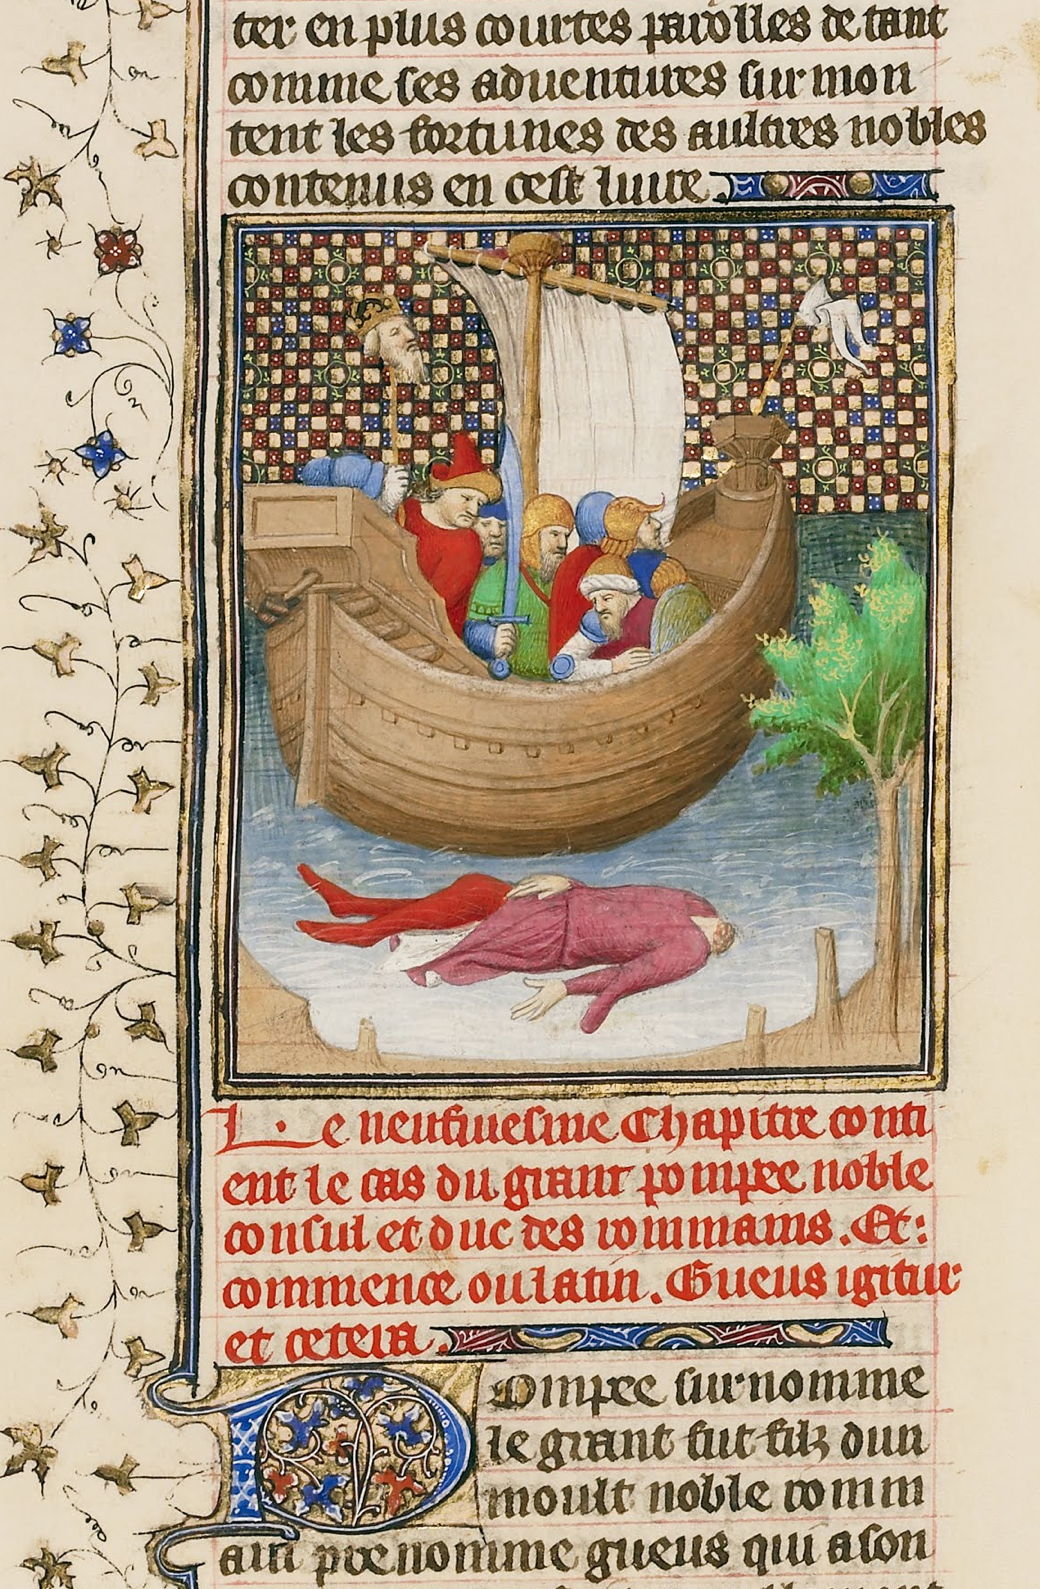 ter en plus courtes parolles de tant
comme ses aduentures surmon
tent les fortunes des aultres nobles
contenus en cest liure
Le neufiuesme Chapitre conti
ent le cas du grant pompee noble
consul et duc des rommains. Et:
commence ou latin. Gueus igitur
et cetera.
Pompee surnomme
le grant fut filz dun
moult noble romm
ain prenomme gueus qui a son